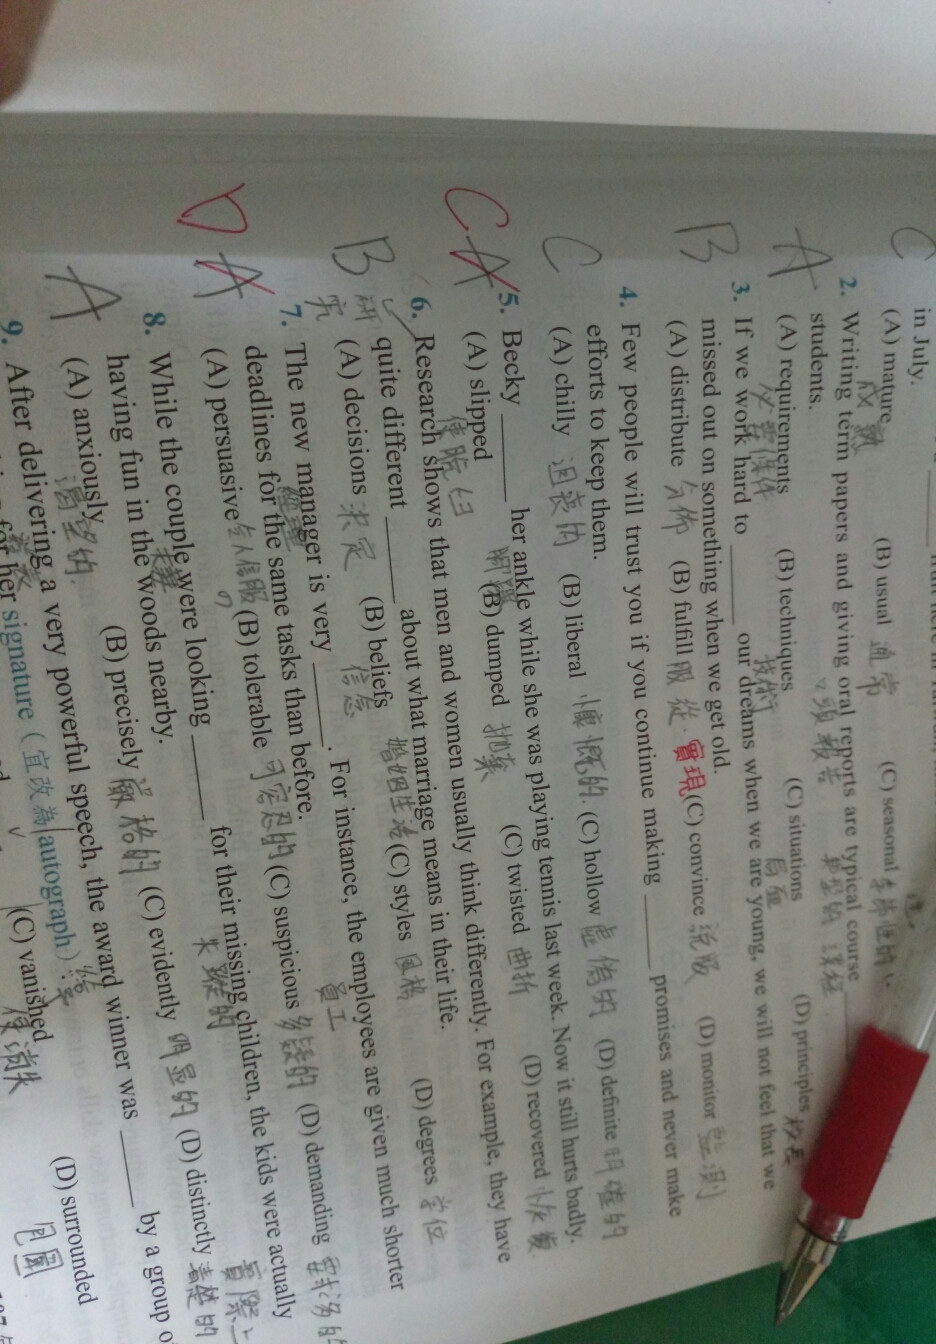 C
in July.
(A) mature 成熟 (B) usual 通常 (C) seasonal
2. Writing term papers and giving oral reports are typical course
students.
A (A) requirements 必要條件 (B) techniques 技術 (C) situations 局面 (D) principles 校長
3. If we work hard to ______ our dreams when we are young, we will not feel that we
missed out on something when we get old.
B (A) distribute 分佈 (B) fulfill 服從 實現 (C) convince 說服 (D) monitor 監測
4. Few people will trust you if you continue making ______ promises and never make
efforts to keep them.
C (A) chilly 沮喪的 (B) liberal 慷慨的 (C) hollow 虛偽的 (D) definite 明確的
5. Becky ______ her ankle while she was playing tennis last week. Now it still hurts badly.
C A (A) slipped 使脫臼 腳踝 (B) dumped 拋棄 (C) twisted 曲折 (D) recovered 恢復
6. Research shows that men and women usually think differently. For example, they have
研究 quite different ______ about what marriage means in their life.
B (A) decisions 決定 (B) beliefs 信念 婚姻生活 (C) styles 風格 (D) degrees 學位
7. The new manager is very ______. For instance, the employees are given much shorter
經理 員工
deadlines for the same tasks than before.
D A (A) persuasive 令人信服的 (B) tolerable 可容忍的 (C) suspicious 多疑的 (D) demanding
8. While the couple were looking ______ for their missing children, the kids were actually
夫妻 失蹤的 實際上
having fun in the woods nearby.
A (A) anxiously 渴望的 (B) precisely 嚴格的 (C) evidently 明显的 (D) distinctly 清楚的
9. After delivering a very powerful speech, the award winner was ______ by a group
發表
for her signature (宜改為 autograph)
(C) vanished 使消失 (D) surrounded 包圍